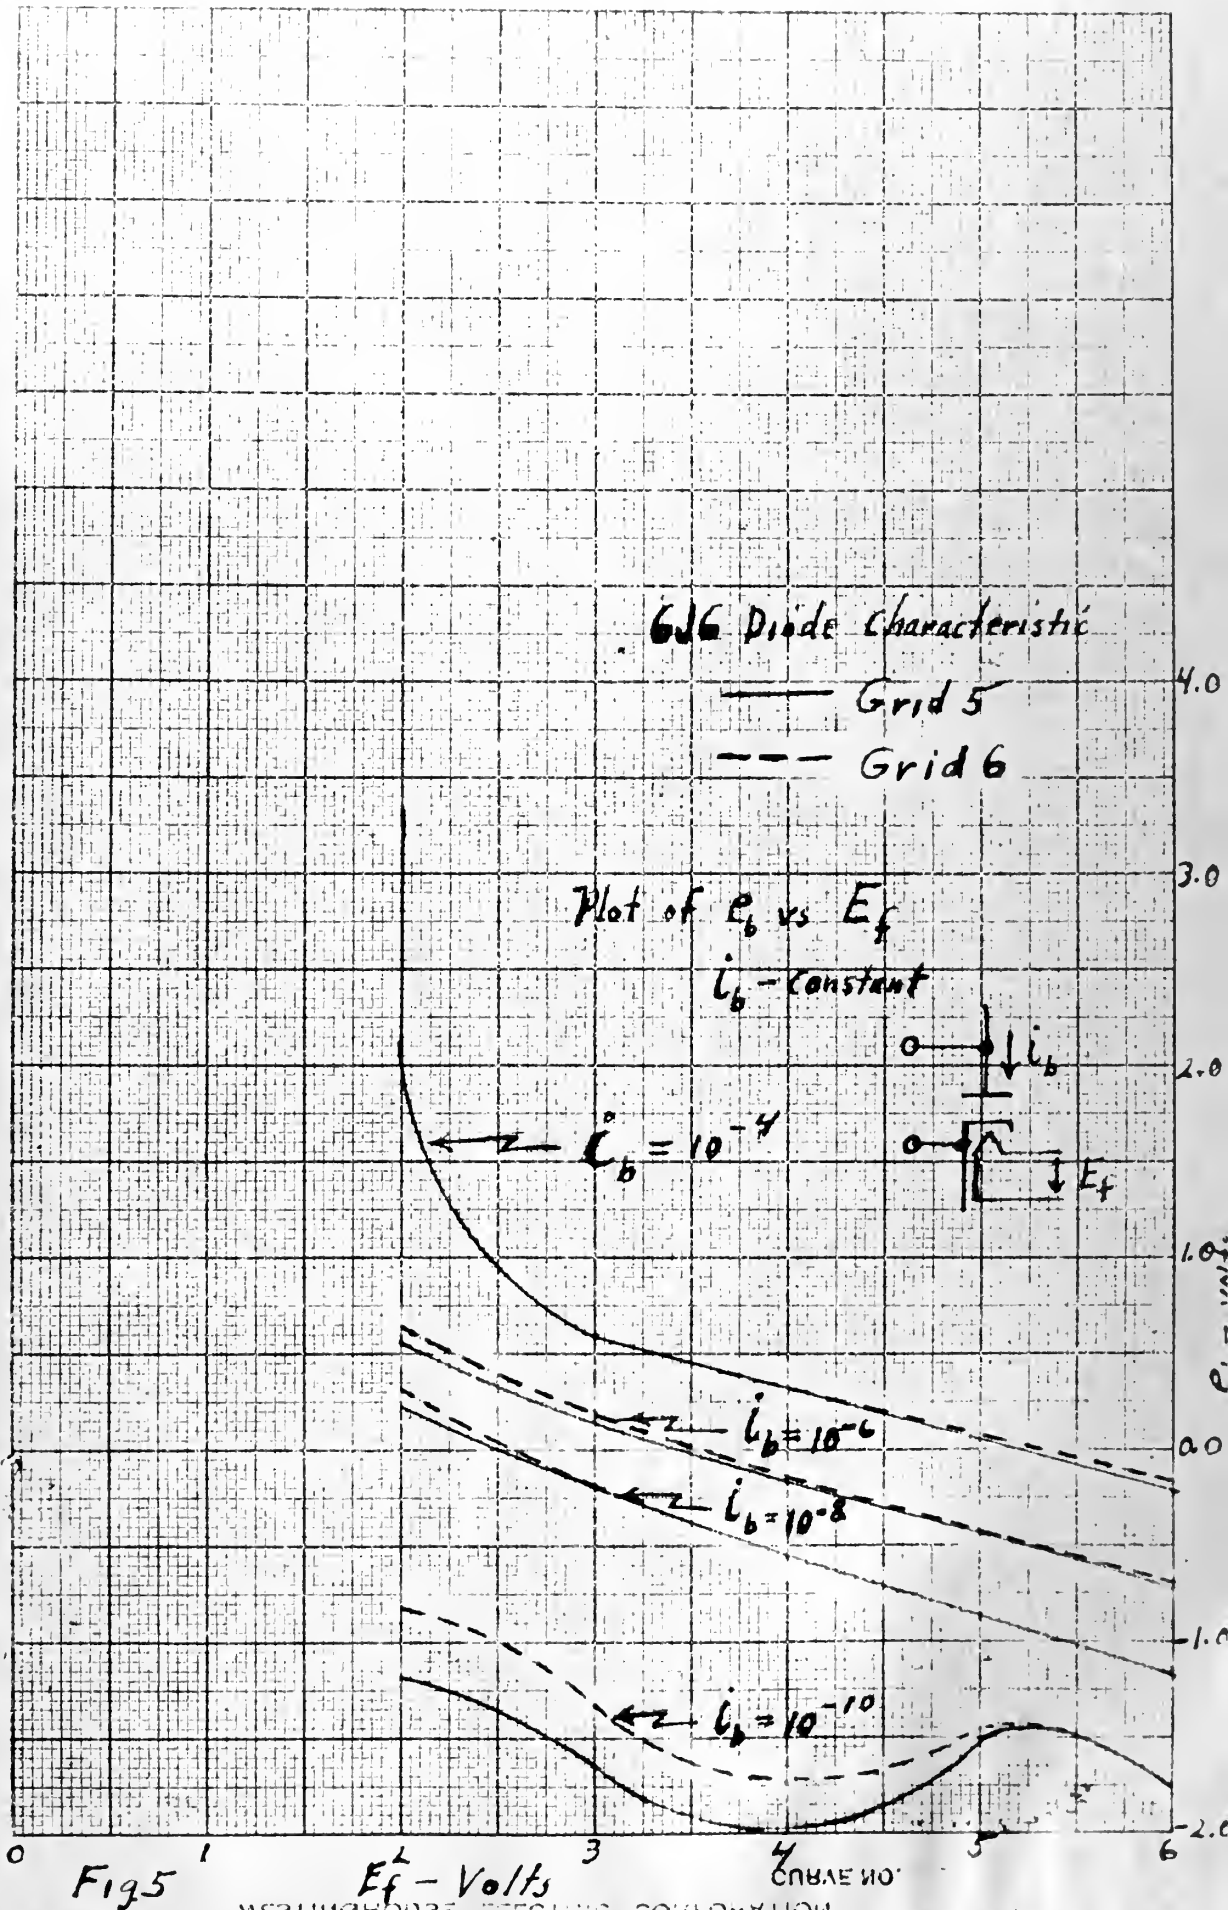 6J6 Diode Characteristic
Grid 5
Grid 6
Plot of e_b vs E_f
i_b - constant
i_b
E_f
i_b = 10^-4
i_b = 10^-6
i_b = 10^-8
i_b = 10^-10
4.0
3.0
2.0
1.0
0.0
-1.0
-2.0
0 1 2 3 4 5 6
Fig 5
E_f - Volts
CURVE NO.